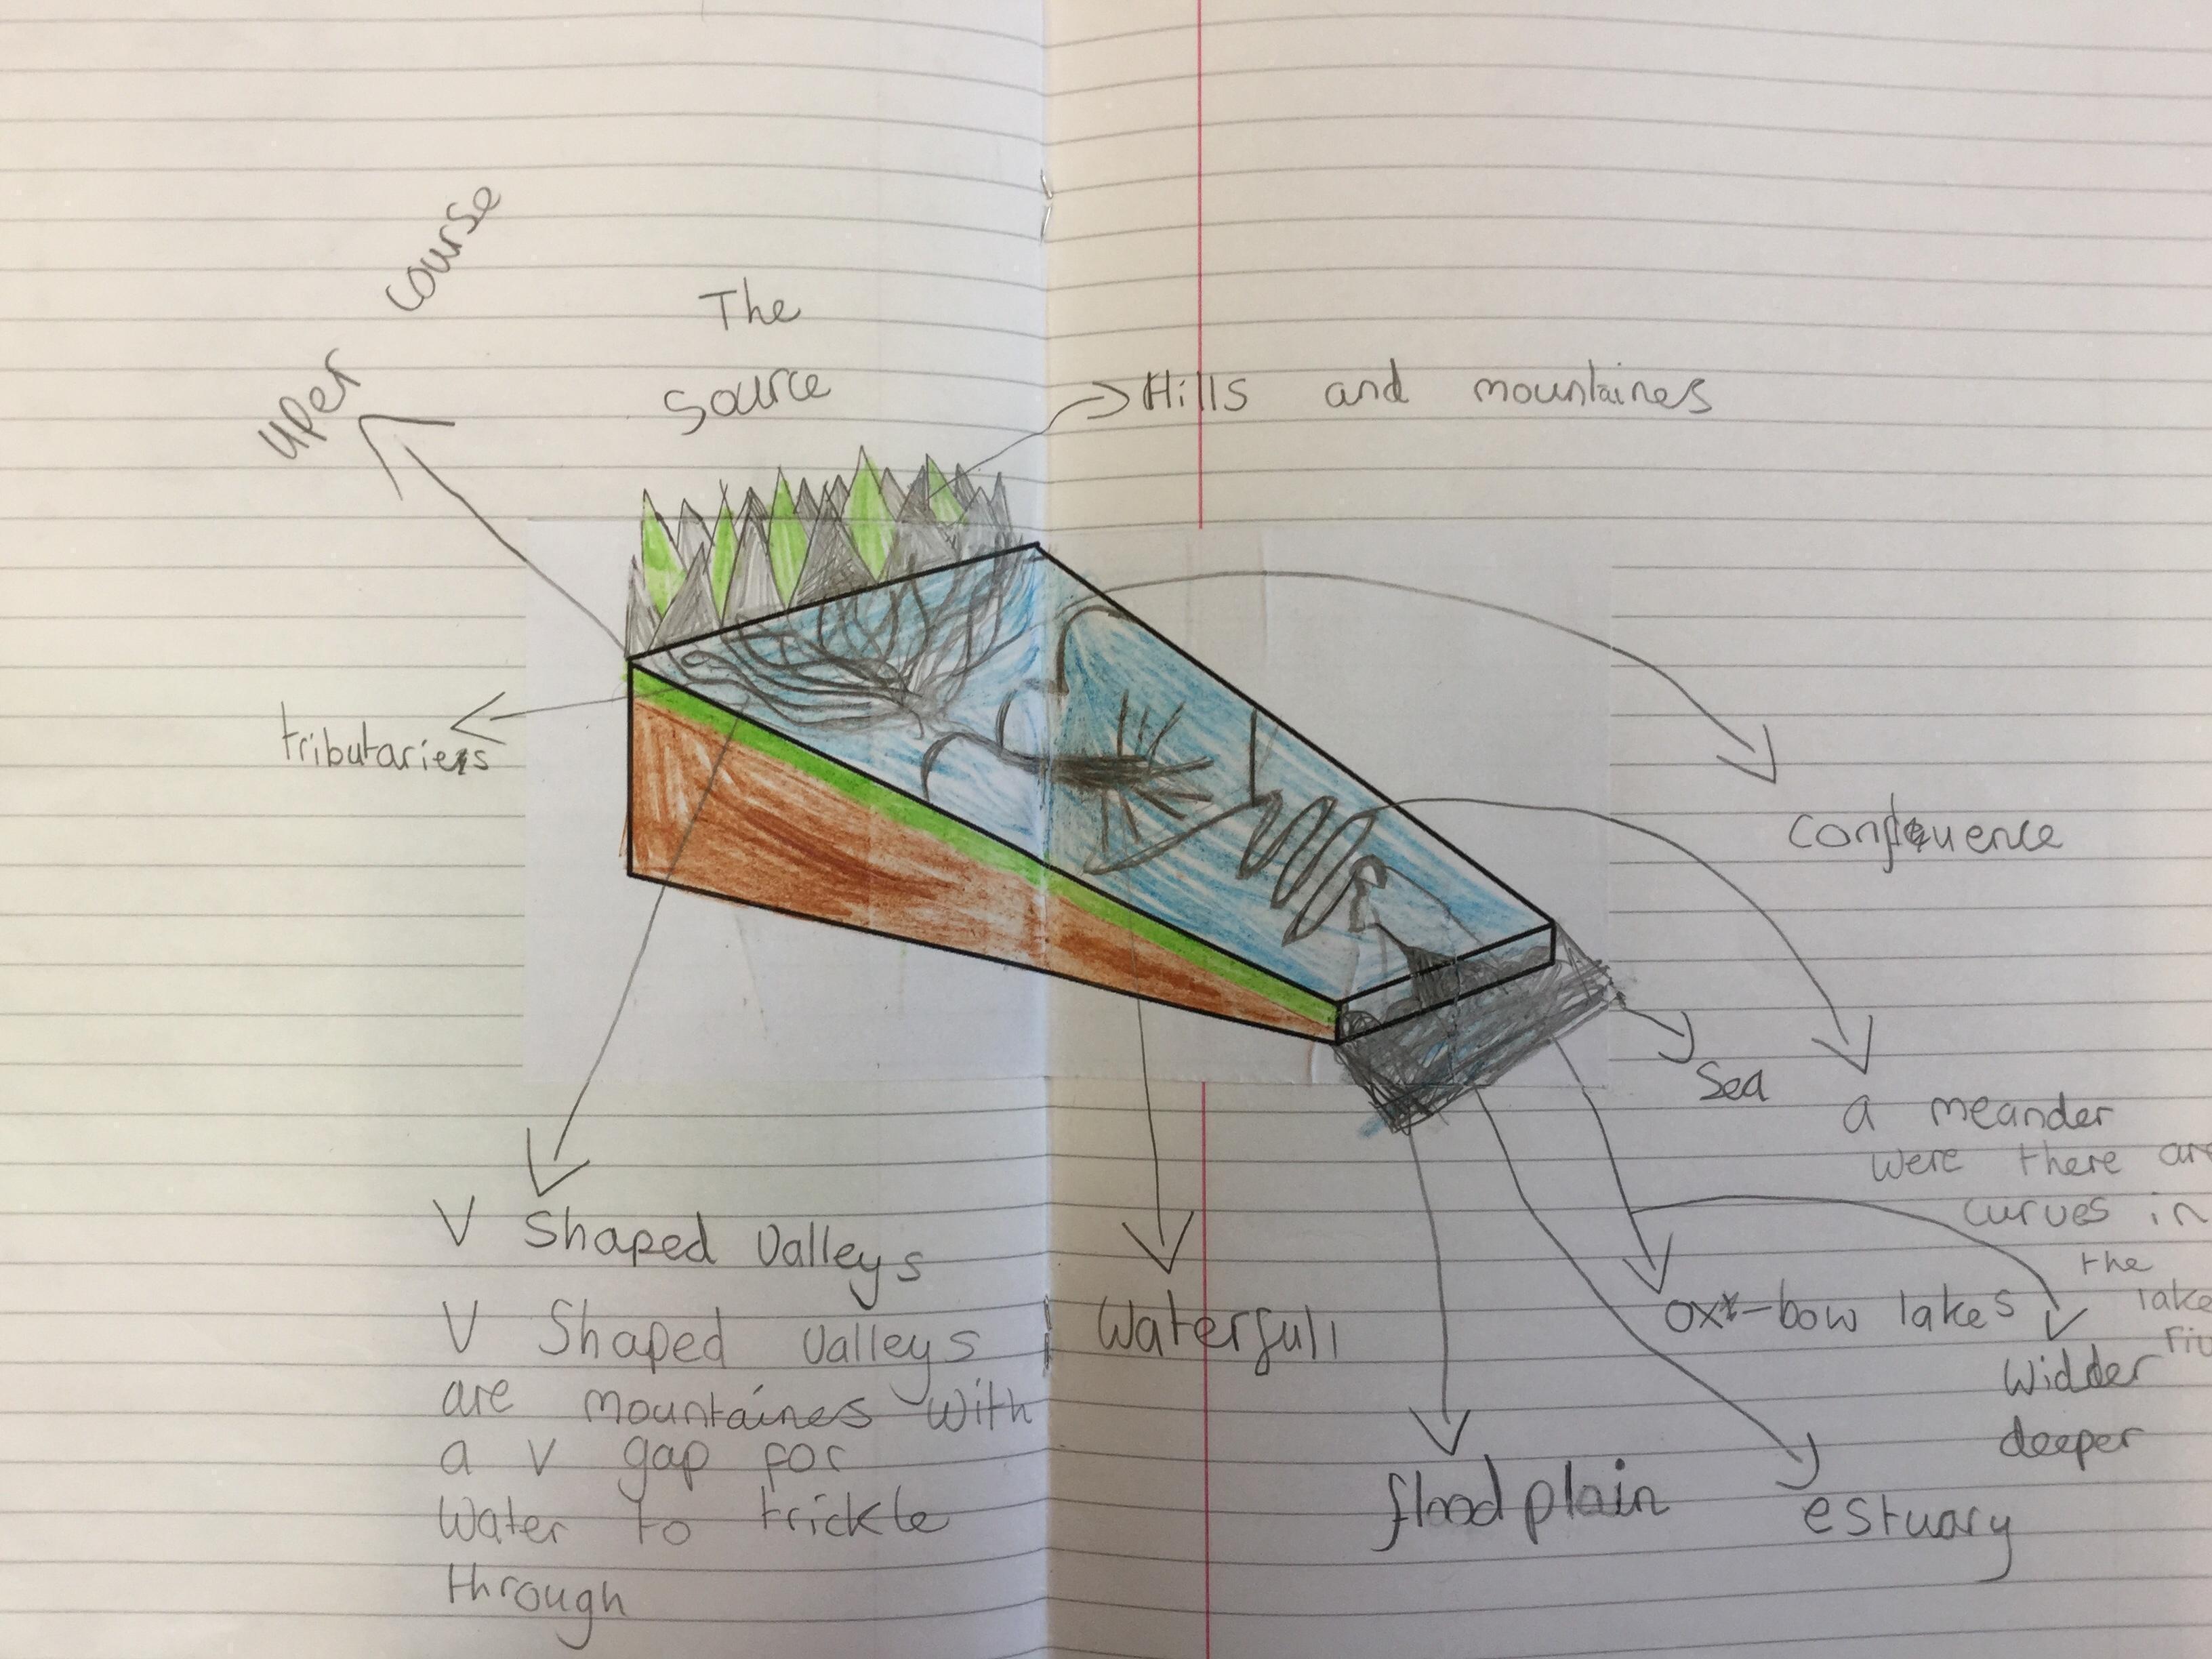 uper course
The
source
Hills and mountaines
tributaries
confluence
Sea
a meander
were there are
curves in
the
lake
V Shaped Valleys
V Shaped Valleys
are mountaines with
a V gap for
Water to trickle
through
Waterfull
ox-bow lakes
Widder
deeper
flood plain
estuary